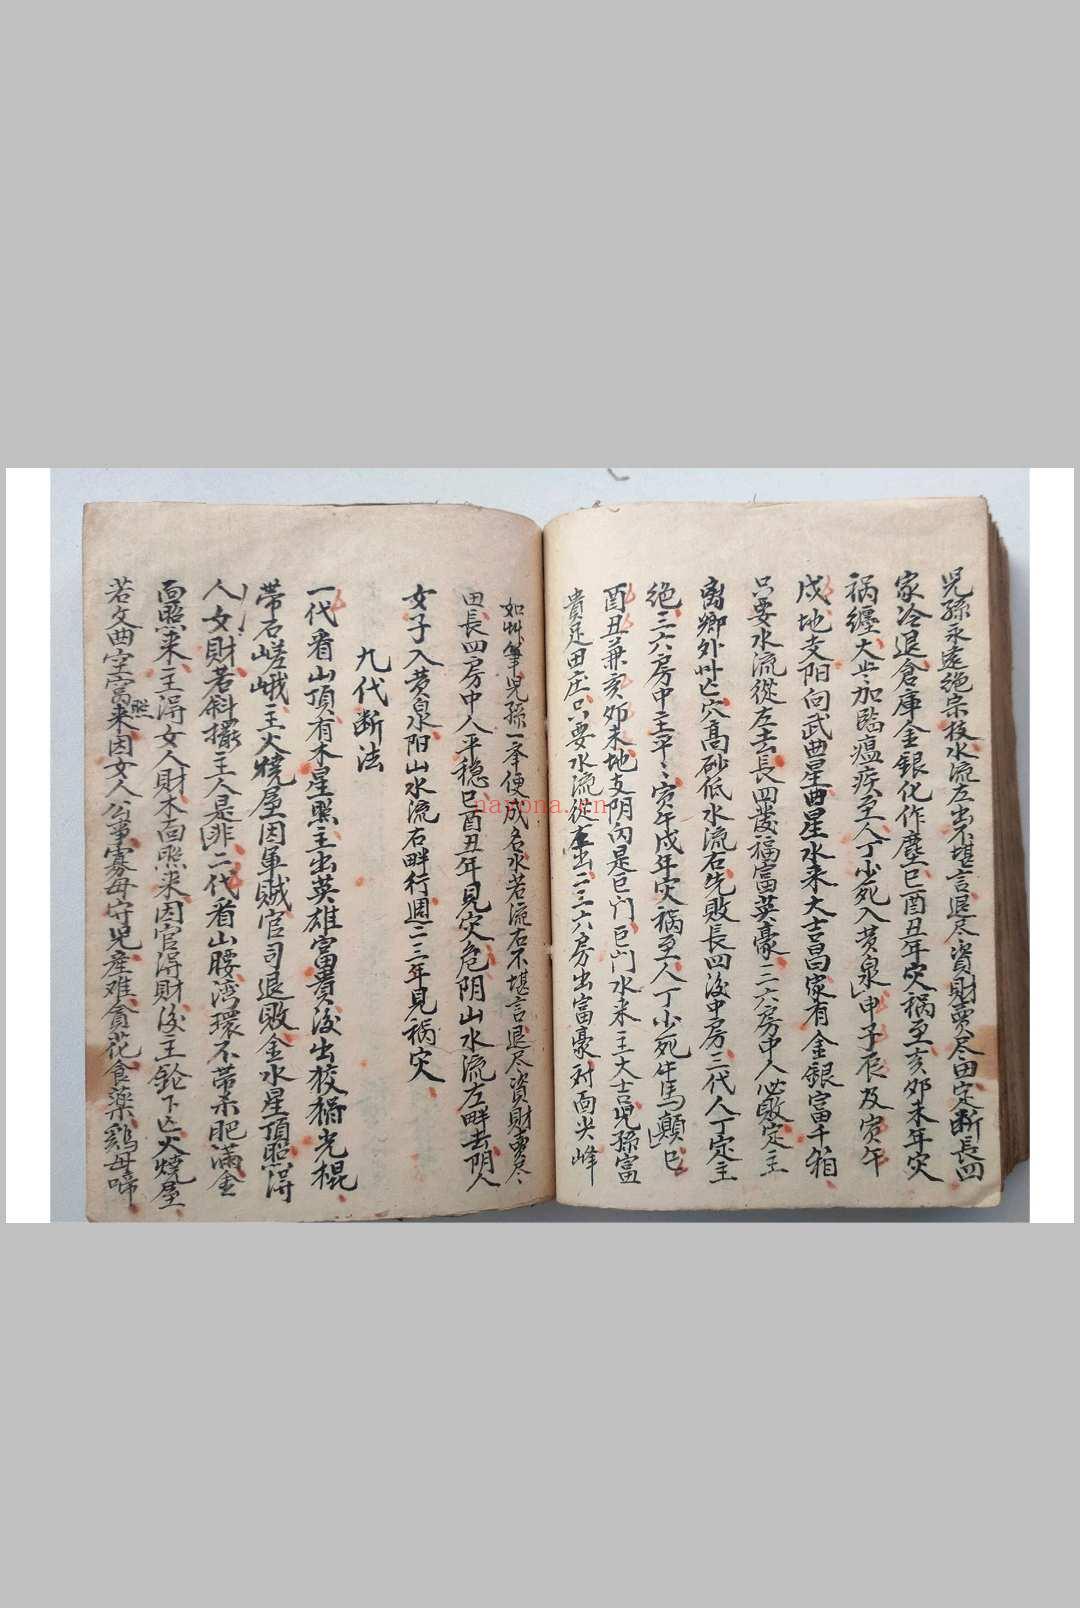 児孫永遠絶宗枝水流左出不堪言退尽資財賣尽田定断長四
家冷退倉庫金銀化作塵巳酉丑年灾禍至亥卯未年灾
祸纏大歩加臨瘟疾至人丁少死入黄泉申子辰及寅午
戍地支阳向武曲星曲星水来大吉昌家有金銀富千箱
只要水流從左去長四發福富英豪二六房中人必敗定主
离鄉外艸亡穴高砂低水流右先敗長四後中房三代人丁定主
絶三六房中主平〻寅午戍年灾祸至人丁少死牛馬顛巳
酉丑兼亥卯未地支阴向是巨门巨门水来主大吉児孫富
貴足田庄只要水流從左出二三六房出富豪对面尖峰
如艸筆児孫一挙便成名水若流右不堪言退尽資財賣尽
田長四房中人平穏巳酉丑年見灾危阴山水流左畔去阴人
女子入黄泉阳山水流右畔行週二三年見祸灾
九代断法
一代看山頂有木星照主出英雄富貴後出狡猾光棍
带石嵯峨主火燒屋因軍賊官司退敗金水星頂照得
人女財若斜撤主人是非二代看山腰湾環不带杀肥滿金
面照来主得女人財木面照来因官得財後主 下亡火燒屋
若文曲字當照来因女人公事寡母守児産难貪花食藥鷄母啼
nayona.cn